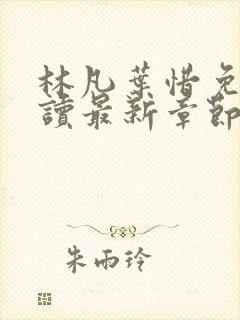 林凡葉惜免
讀最新章節
朱雨玲